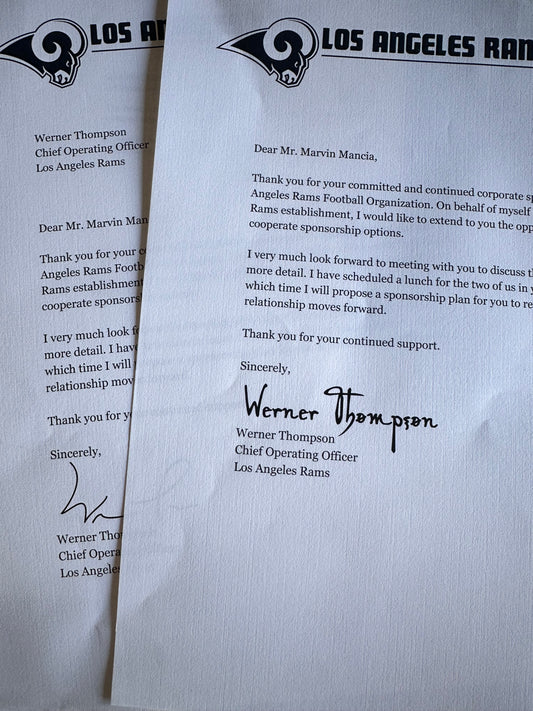 LOS A
Werner Thompson
Chief Operating Officer
Los Angeles Rams
Dear Mr. Marvin Man
Thank you for your c
Angeles Rams Footb
Rams establishment
cooperate sponsors
I very much look f
more detail. I have
which time I will
relationship mov
Thank you for y
Sincerely,
Werner Tho
Chief Opera
Los Angele
LOS ANGELES RAM
Dear Mr. Marvin Mancia,
Thank you for your committed and continued corporate s
Angeles Rams Football Organization. On behalf of myself
Rams establishment, I would like to extend to you the opp
cooperate sponsorship options.
I very much look forward to meeting with you to discuss t
more detail. I have scheduled a lunch for the two of us in y
which time I will propose a sponsorship plan for you to re
relationship moves forward.
Thank you for your continued support.
Sincerely,
Werner Thompson
Werner Thompson
Chief Operating Officer
Los Angeles Rams